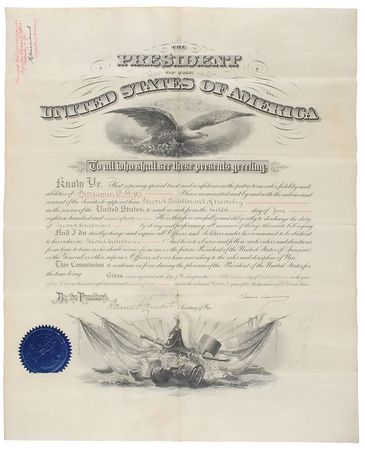 THE
PRESIDENT
OF THE
UNITED STATES OF AMERICA
To all who shall see these presents greeting:
Know Ye, That reposing special trust and confidence in the patriotism, valor, fidelity and
abilities of Benjamin B. Hyer I have nominated and by and with the advice and
consent of the Senate do appoint him Second Lieutenant of Cavalry
in the service of the United States: to rank as such from the twelfth day of June
eighteen hundred and ninety He is therefore carefully and diligently to discharge the duty of
Second Lieutenant by doing and performing all manner of things thereunto belonging
And I do strictly charge and require all Officers and Soldiers under his command to be obedient
to his orders as Second Lieutenant And he is to observe and follow such orders and directions
from time to time as he shall receive from me or the future President of the United States of America
or the General or other superior Officers set over him according to the rules and discipline of War.
This Commission to continue in force during the pleasure of the President of the United States for
the time being.
Given
By the President,
Secretary of War.